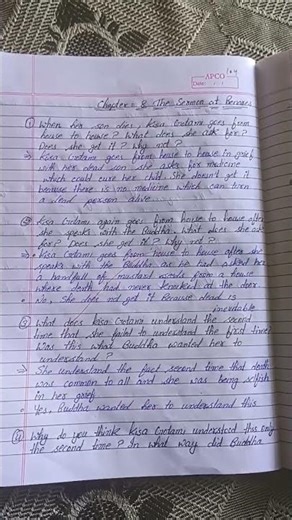 104
APCO
Date:
Chapter - 8 The Sermon at Benares
① When her son dies, Kisa Gotami goes from
house to house? What does she ask for?
Does she get it? Why not?
⇒ Kisa Gotami goes from house to house in grief
with her dead son she asks for medicine
which could cure her child. She doesn't get it
because there is no medicine which can turn
a dead person alive.
② Kisa Gotami again goes from house to house after
she speaks with the Buddha. What does she ask
for? Does she get it? Why not?
⇒ • Kisa Gotami goes from house to house after she
speaks with the Buddha as he had asked her
a handfull of mustard seeds from a house
where death had never knocked at the door
• No, She does not get it Because dead is
inevitable
③ What does Kisa Gotami understand the second
time that she faild to understand the first time?
Was this what Buddha wanted her to
understand?
⇒ She understand the fact second time that death
was common to all and she was being selfish
in her grief.
• Yes, Buddha wanted her to understand this
④ Why do you think Kisa Gotami understood this only
the second time? In what way did Buddha